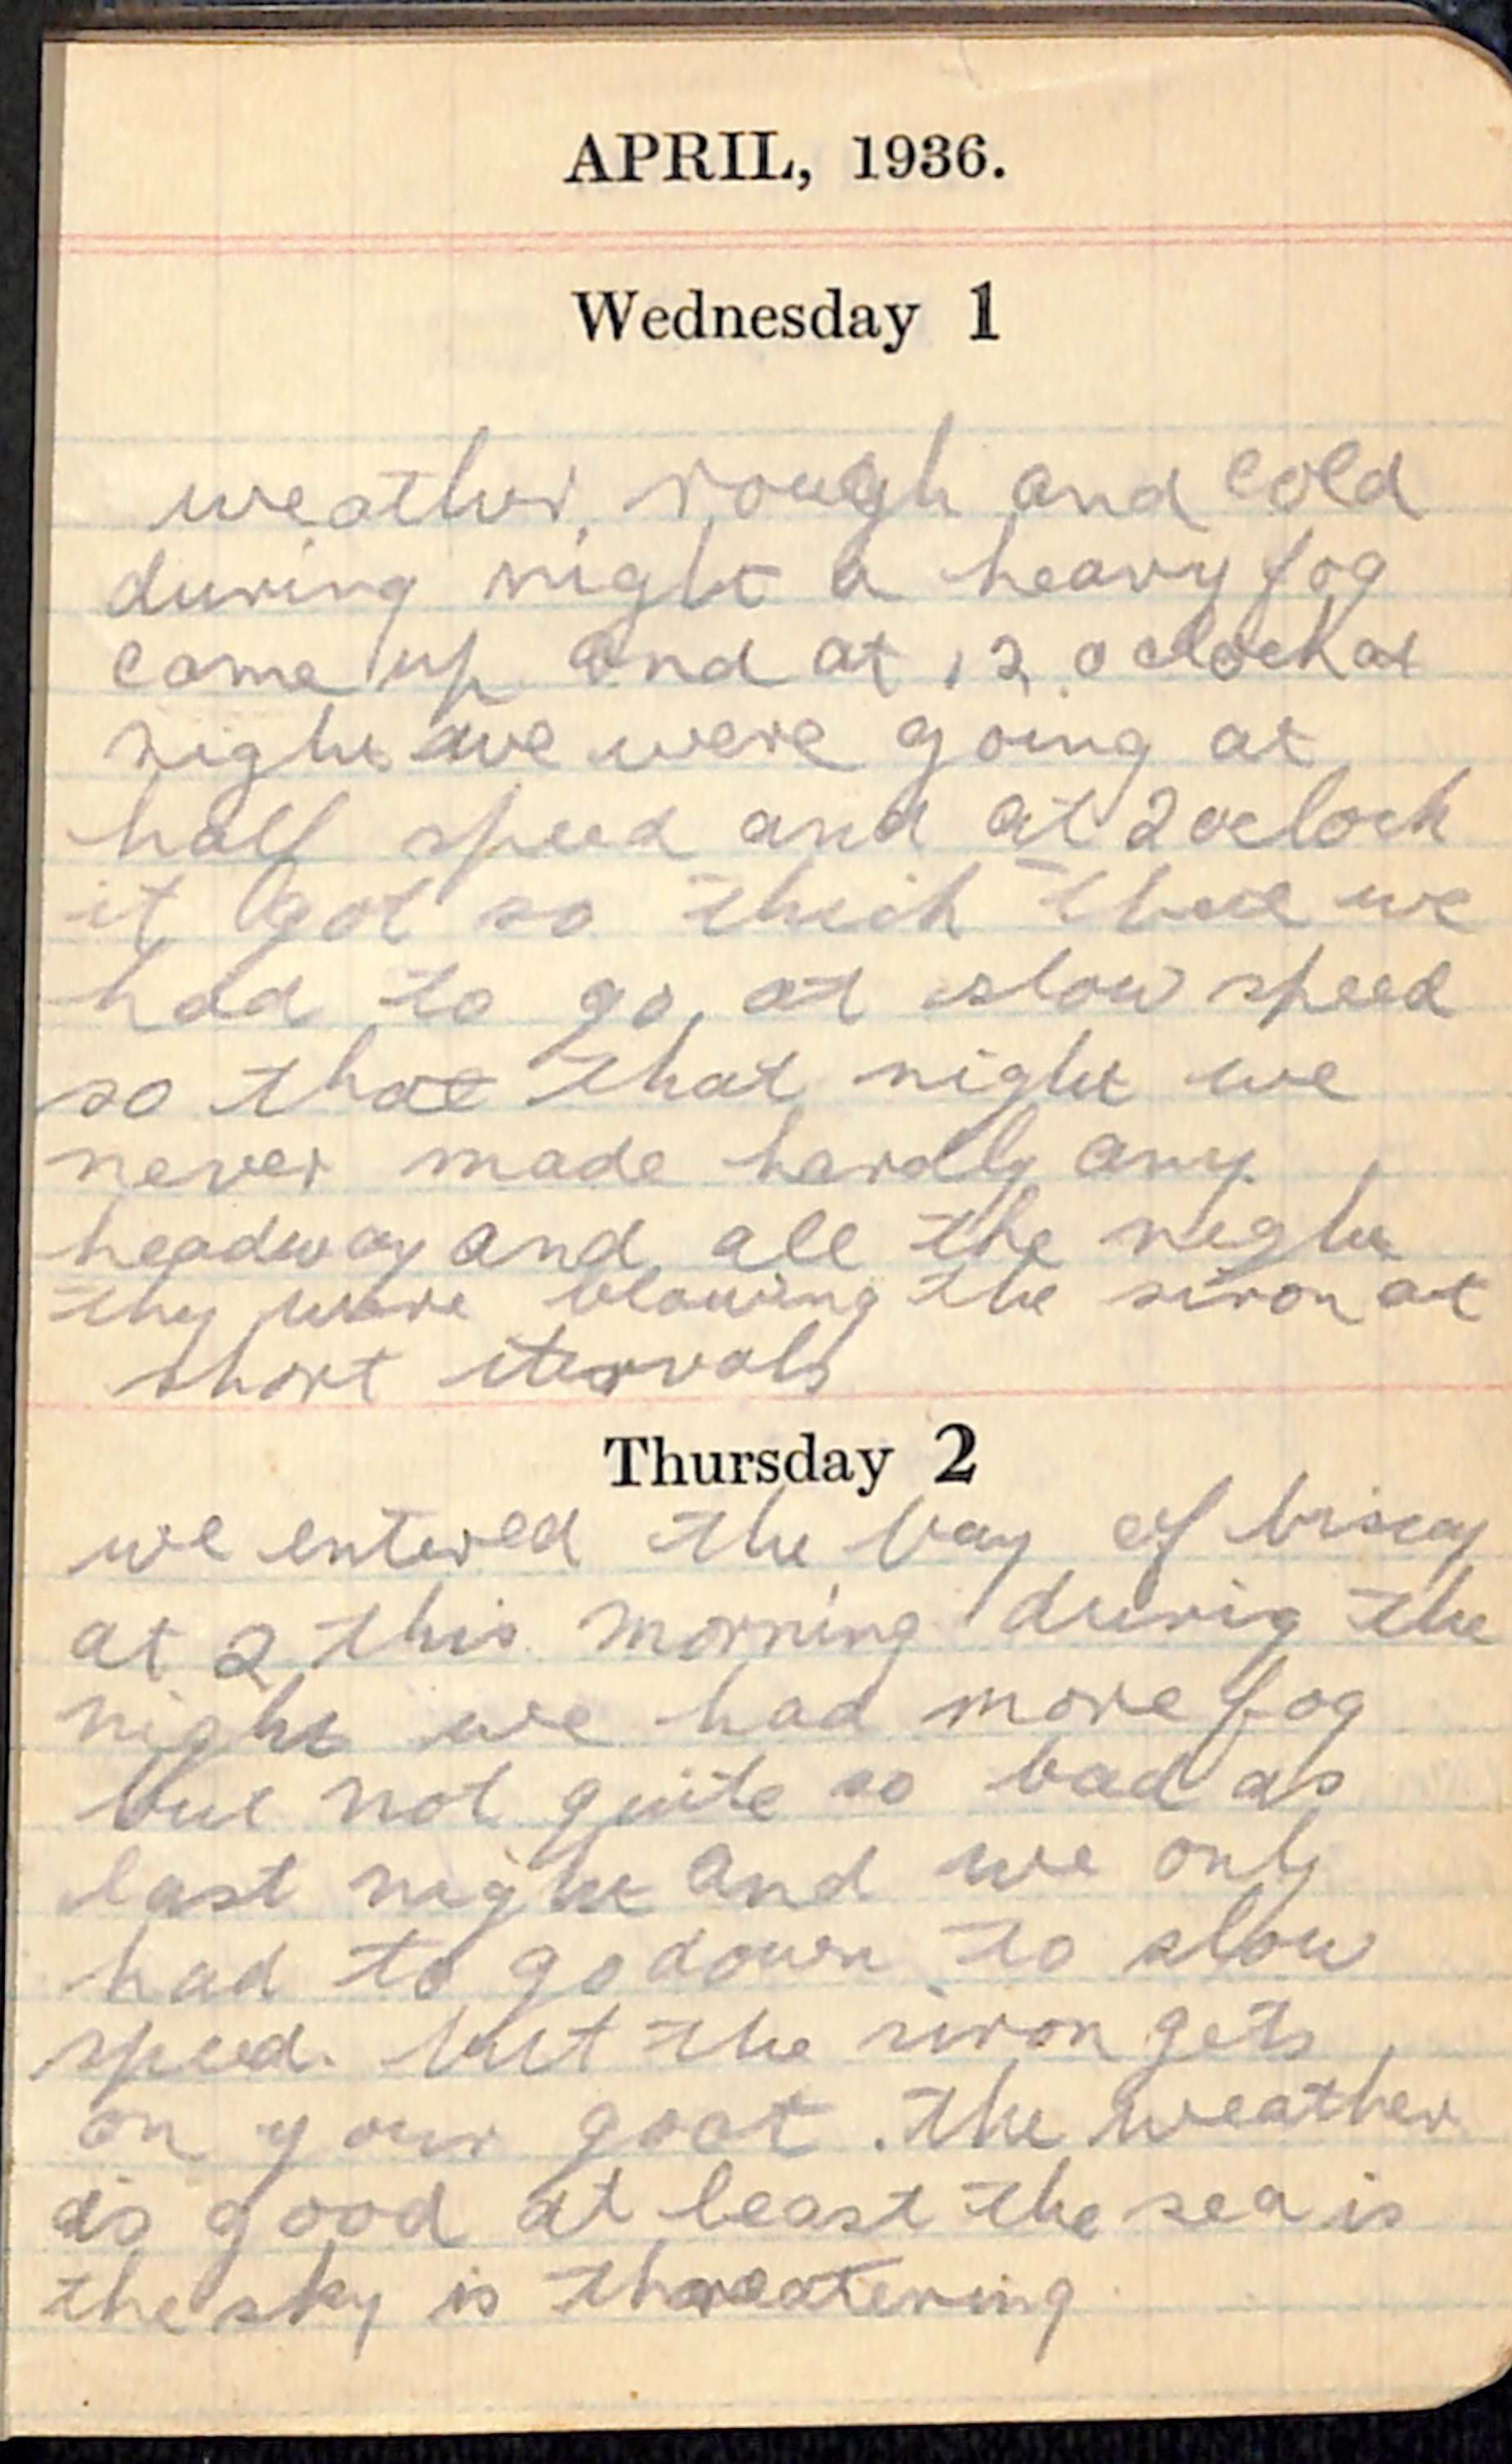 APRIL, 1936.
Wednesday 1
weather rough and cold
during night a heavy fog
came up and at 12 oclock at
night we were going at
half speed and at 2 oclock
it got so thick that we
had to go at slow speed
so that that night we
never made hardly any
headway and all the night
thy were blowing the siron at
short itervals
Thursday 2
we entered the bay of biscay
at 2 this morning durig the
night we had more fog
but not quite so bad as
last night and we only
had to go down to slow
speed. but the siron gets
on your goat. the weather
is good at least the sea is
the sky is threatering